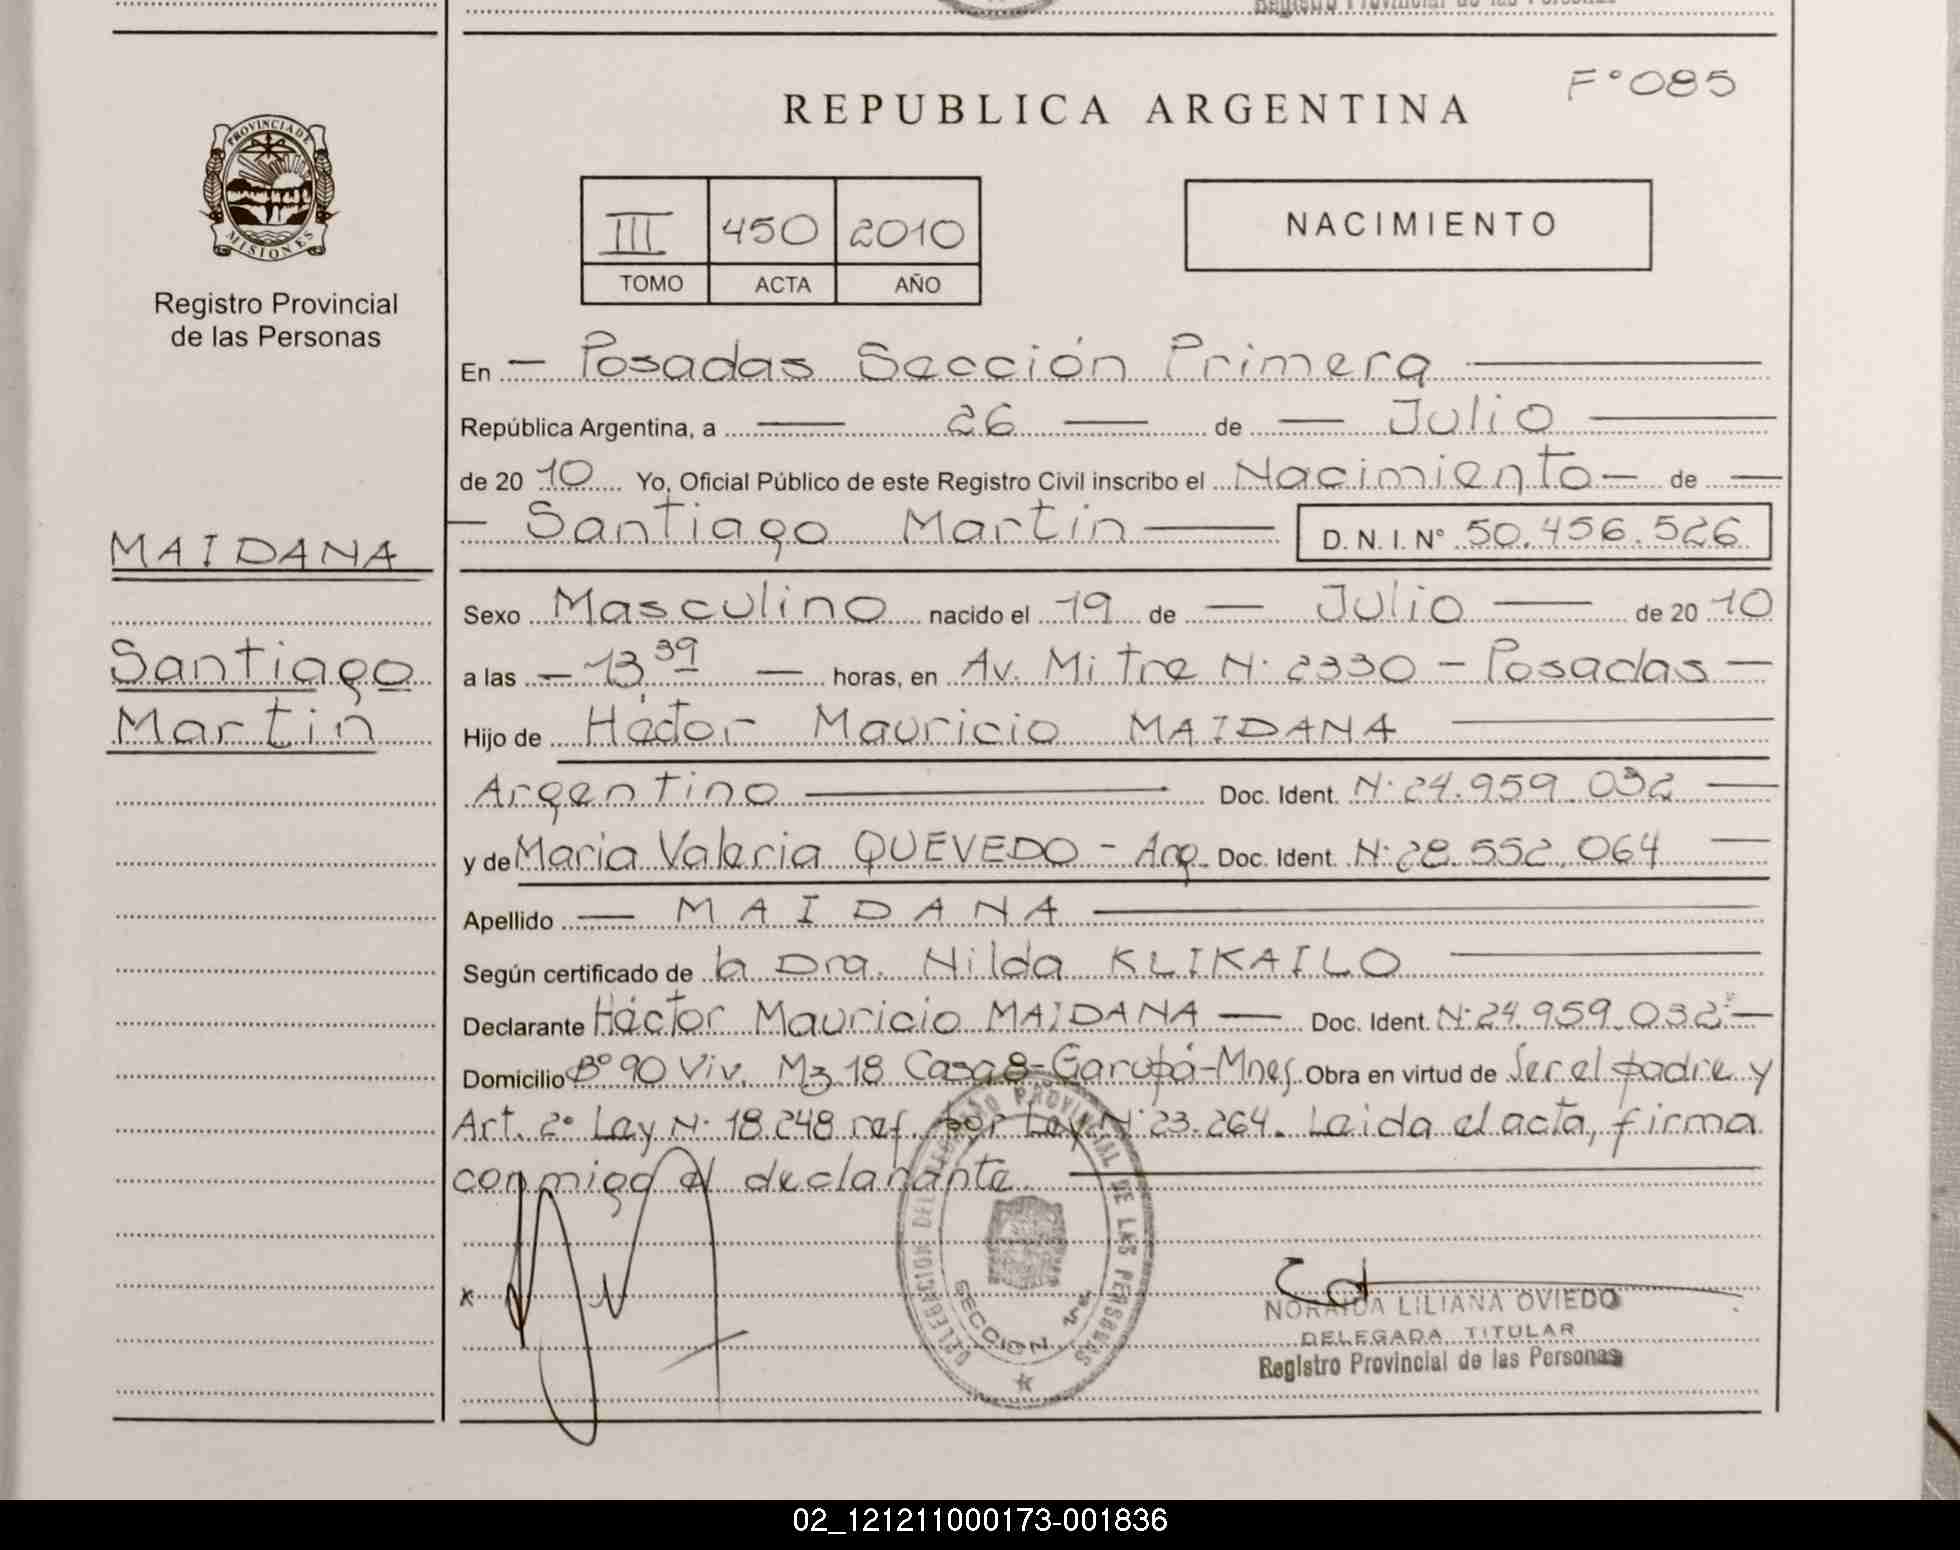 Registro Provincial de las Personas
F° 085
REPUBLICA ARGENTINA
PROVINCIA DE
MISIONES
Registro Provincial
de las Personas
III 450 2010
TOMO ACTA AÑO
NACIMIENTO
En — Posadas Sección Primera —
República Argentina, a — 26 — de — Julio —
de 20 10 Yo, Oficial Público de este Registro Civil inscribo el Nacimiento — de —
— Santiago Martin — D. N. I. N° 50.456.526
MAIDANA
Santiago
Martin
Sexo Masculino nacido el 19 de — Julio — de 20 10
a las — 13 39 — horas, en Av. Mitre N· 2330 — Posadas —
Hijo de Héctor Mauricio MAIDANA —
Argentino — Doc. Ident. N· 24.959.032 —
y de Maria Valeria QUEVEDO - Arg. Doc. Ident. N· 28.552.064 —
Apellido — MAIDANA —
Según certificado de la Dra. Nilda KLIKAILO —
Declarante Héctor Mauricio MAIDANA — Doc. Ident. N· 24.959.032 —
Domicilio B° 90 Viv. Mz 18 Casa 8 - Garupá - Mnes. Obra en virtud de Ser el padre y
Art. 2° Ley N· 18.248 ref. por Ley N· 23.264. Leida el acta, firma
conmigo el declarante. —
DELEGACION DEL REGISTRO PROVINCIAL DE LAS PERSONAS
SECCION 1ra.
x
NORAIDA LILIANA OVIEDO
DELEGADA TITULAR
Registro Provincial de las Personas
02_121211000173-001836